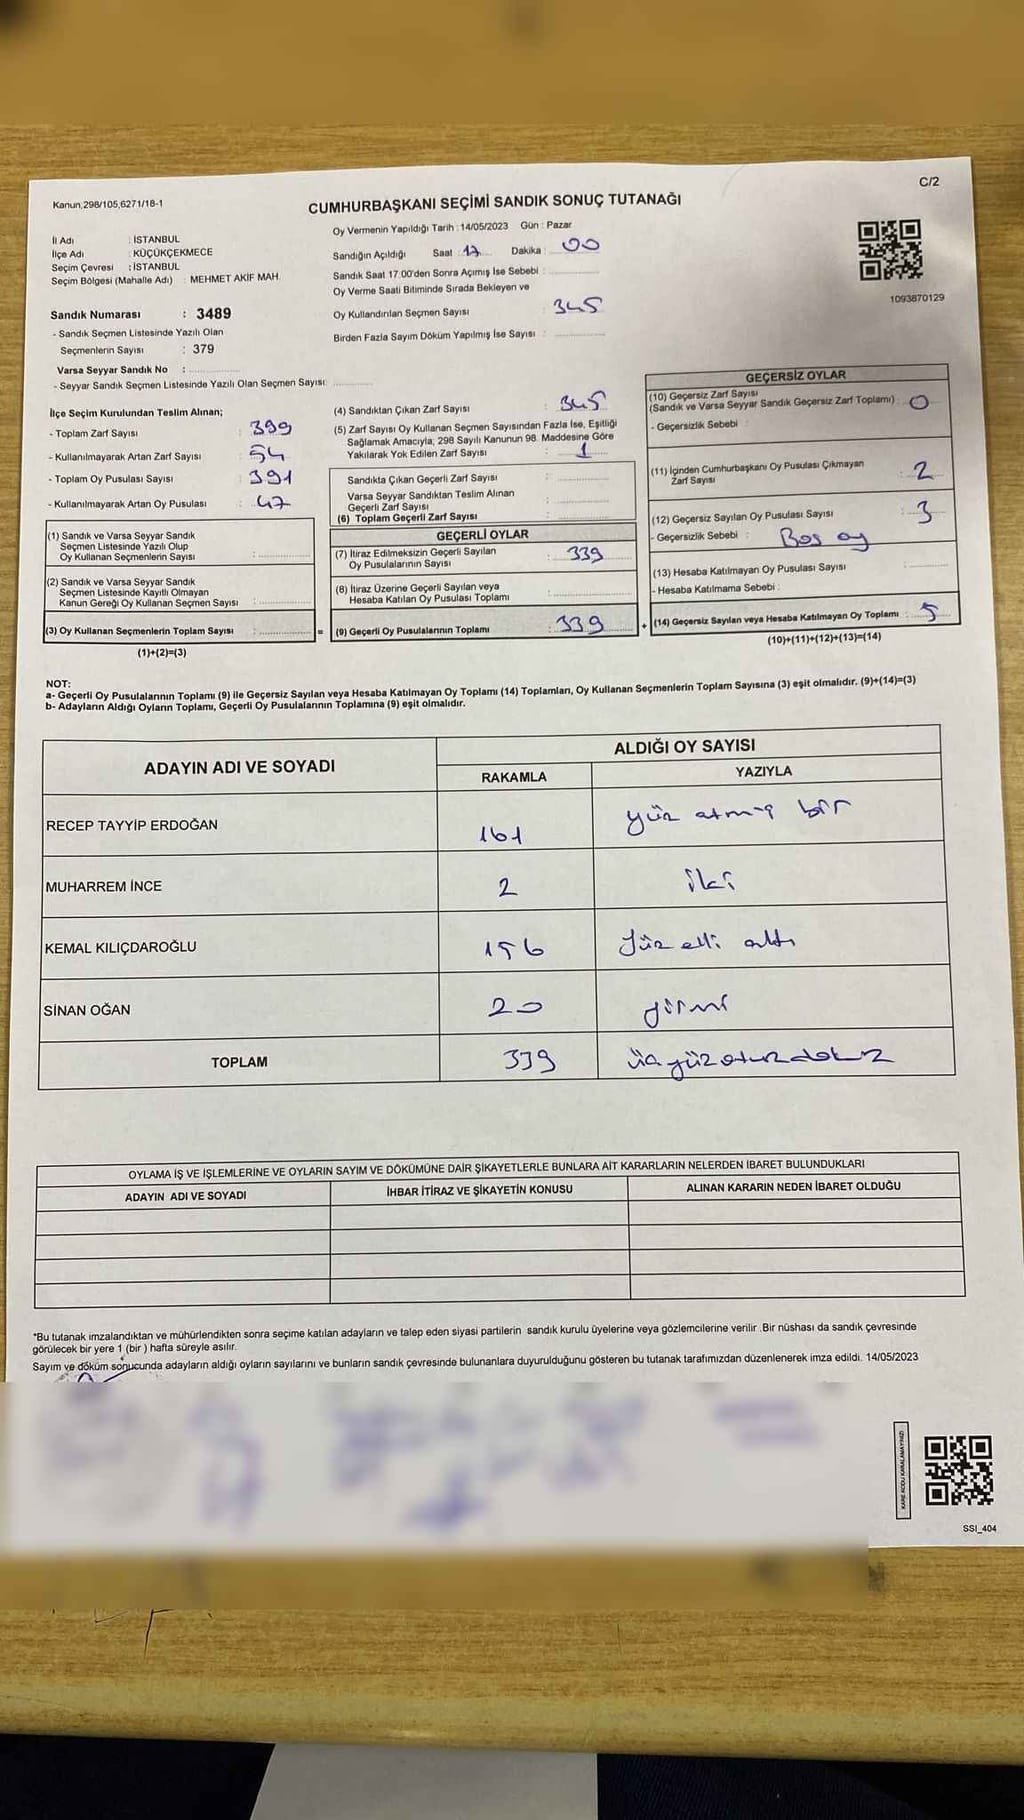 C/2
Kanun,298/105,6271/18-1
CUMHURBAŞKANI SEÇİMİ SANDIK SONUÇ TUTANAĞI
İl Adı : İSTANBUL
İlçe Adı : KÜÇÜKÇEKMECE
Seçim Çevresi : İSTANBUL
Seçim Bölgesi (Mahalle Adı) : MEHMET AKİF MAH.
Sandık Numarası : 3489
- Sandık Seçmen Listesinde Yazılı Olan
Seçmenlerin Sayısı : 379
Varsa Seyyar Sandık No :
- Seyyar Sandık Seçmen Listesinde Yazılı Olan Seçmen Sayısı:
Oy Vermenin Yapıldığı Tarih : 14/05/2023 Gün : Pazar
Sandığın Açıldığı Saat : 17 Dakika : 00
Sandık Saat 17:00'den Sonra Açımış İse Sebebi :
Oy Verme Saati Bitiminde Sırada Bekleyen ve
Oy Kullandırılan Seçmen Sayısı : 345
Birden Fazla Sayım Döküm Yapılmış İse Sayısı :
1093870129
İlçe Seçim Kurulundan Teslim Alınan;
- Toplam Zarf Sayısı : 399
- Kullanılmayarak Artan Zarf Sayısı : 54
- Toplam Oy Pusulası Sayısı : 391
- Kullanılmayarak Artan Oy Pusulası : 47
(1) Sandık ve Varsa Seyyar Sandık
Seçmen Listesinde Yazılı Olup
Oy Kullanan Seçmenlerin Sayısı :
(2) Sandık ve Varsa Seyyar Sandık
Seçmen Listesinde Kayıtlı Olmayan
Kanun Gereği Oy Kullanan Seçmen Sayısı :
(3) Oy Kullanan Seçmenlerin Toplam Sayısı :
(1)+(2)=(3)
(4) Sandıktan Çıkan Zarf Sayısı : 345
(5) Zarf Sayısı Oy Kullanan Seçmen Sayısından Fazla İse, Eşitliği
Sağlamak Amacıyla, 298 Sayılı Kanunun 98. Maddesine Göre
Yakılarak Yok Edilen Zarf Sayısı : 1
Sandıkta Çıkan Geçerli Zarf Sayısı :
Varsa Seyyar Sandıktan Teslim Alınan
Geçerli Zarf Sayısı :
(6) Toplam Geçerli Zarf Sayısı :
GEÇERLİ OYLAR
(7) İtiraz Edilmeksizin Geçerli Sayılan
Oy Pusulalarının Sayısı : 339
(8) İtiraz Üzerine Geçerli Sayılan veya
Hesaba Katılan Oy Pusulası Toplamı :
= (9) Geçerli Oy Pusulalarının Toplamı : 339
GEÇERSİZ OYLAR
(10) Geçersiz Zarf Sayısı
(Sandık ve Varsa Seyyar Sandık Geçersiz Zarf Toplamı) : 0
- Geçersizlik Sebebi :
(11) İçinden Cumhurbaşkanı Oy Pusulası Çıkmayan
Zarf Sayısı : 2
(12) Geçersiz Sayılan Oy Pusulası Sayısı : 3
- Geçersizlik Sebebi : Boş oy
(13) Hesaba Katılmayan Oy Pusulası Sayısı :
- Hesaba Katılmama Sebebi :
+ (14) Geçersiz Sayılan veya Hesaba Katılmayan Oy Toplamı : 5
(10)+(11)+(12)+(13)=(14)
NOT:
a- Geçerli Oy Pusulalarının Toplamı (9) ile Geçersiz Sayılan veya Hesaba Katılmayan Oy Toplamı (14) Toplamları, Oy Kullanan Seçmenlerin Toplam Sayısına (3) eşit olmalıdır. (9)+(14)=(3)
b- Adayların Aldığı Oyların Toplamı, Geçerli Oy Pusulalarının Toplamına (9) eşit olmalıdır.
ADAYIN ADI VE SOYADI
ALDIĞI OY SAYISI
RAKAMLA YAZIYLA
RECEP TAYYİP ERDOĞAN 161 yüz atmış bir
MUHARREM İNCE 2 iki
KEMAL KILIÇDAROĞLU 156 Yüz elli altı
SİNAN OĞAN 20 yirmi
TOPLAM 339 üçyüzotuzdokuz
OYLAMA İŞ VE İŞLEMLERİNE VE OYLARIN SAYIM VE DÖKÜMÜNE DAİR ŞİKAYETLERLE BUNLARA AİT KARARLARIN NELERDEN İBARET BULUNDUKLARI
ADAYIN ADI VE SOYADI İHBAR İTİRAZ VE ŞİKAYETİN KONUSU ALINAN KARARIN NEDEN İBARET OLDUĞU
*Bu tutanak imzalandıktan ve mühürlendikten sonra seçime katılan adayların ve talep eden siyasi partilerin sandık kurulu üyelerine veya gözlemcilerine verilir. Bir nüshası da sandık çevresinde
görülecek bir yere 1 (bir) hafta süreyle asılır.
Sayım ve döküm sonucunda adayların aldığı oyların sayılarını ve bunların sandık çevresinde bulunanlara duyurulduğunu gösteren bu tutanak tarafımızdan düzenlenerek imza edildi. 14/05/2023
KARE KODU KARALAMAYINIZ!
SSI_404